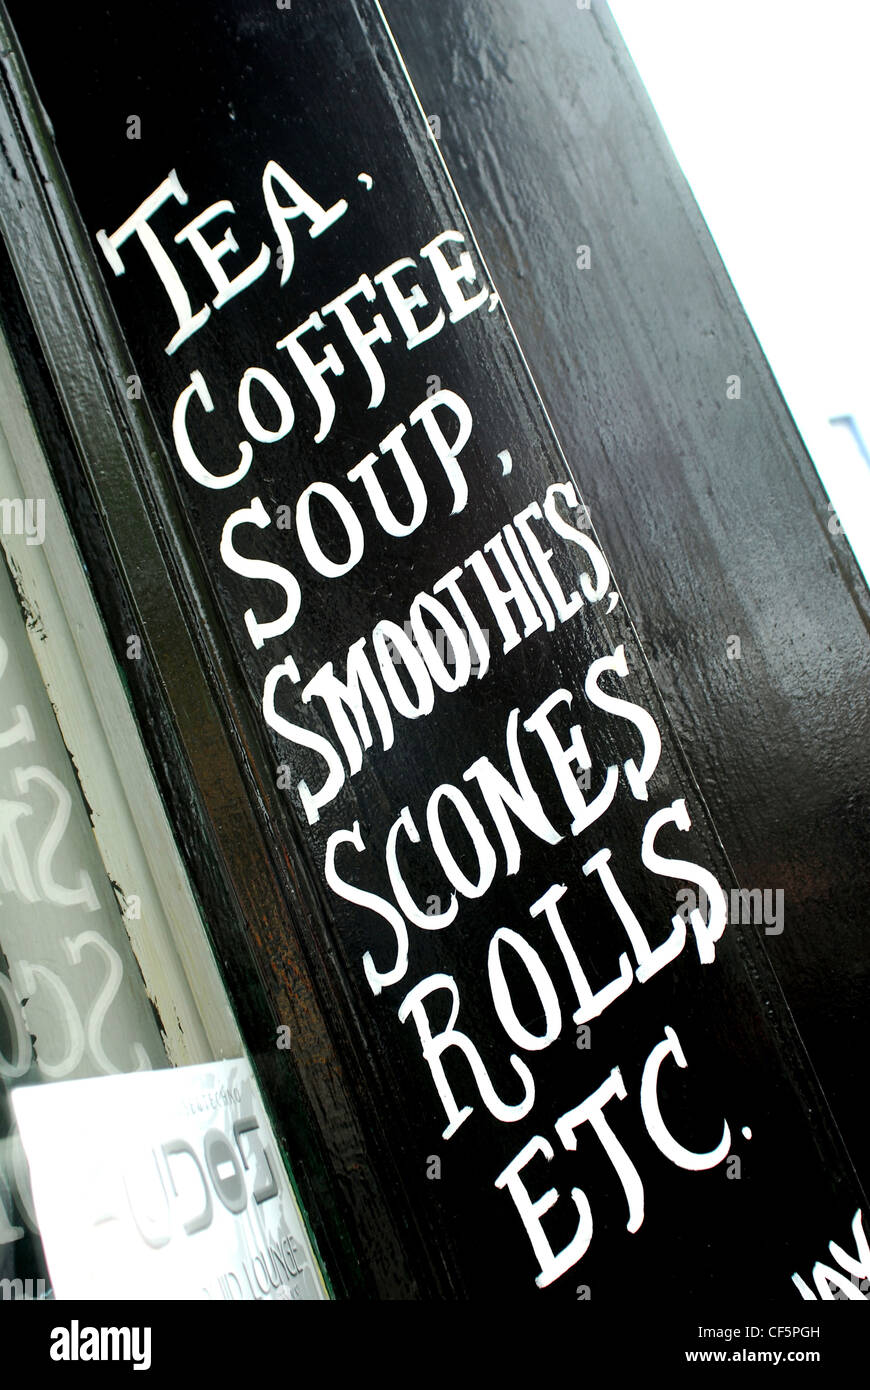 TEA,
COFFEE,
SOUP,
SMOOTHIES,
SCONES
ROLLS
ETC.
LOUNGE
alamy
Image ID: CF5PGH
www.alamy.com